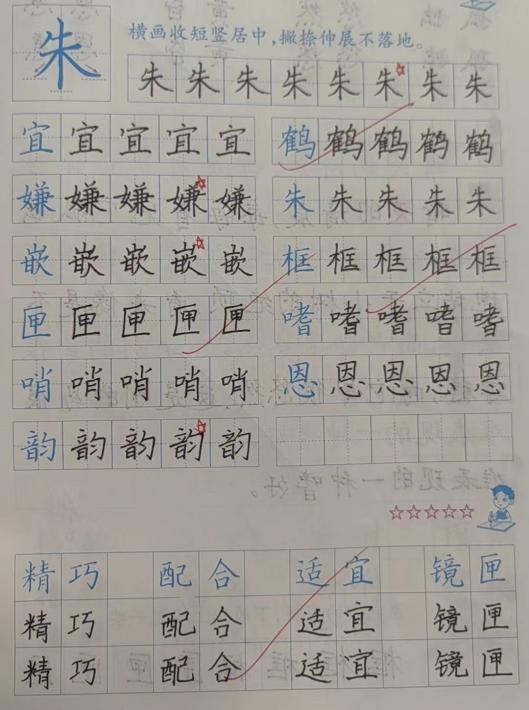 朱
横画收短竖居中,撇捺伸展不落地。
朱朱朱朱朱朱朱朱
宜宜宜宜宜 鹤鹤鹤鹤鹤
嫌嫌嫌嫌嫌 朱朱朱朱朱
嵌嵌嵌嵌嵌 框框框框框
匣匣匣匣匣 嗜嗜嗜嗜嗜
哨哨哨哨哨 恩恩恩恩恩
韵韵韵韵韵
精巧 配合 适宜 镜匣
精巧 配合 适宜 镜匣
精巧 配合 适宜 镜匣